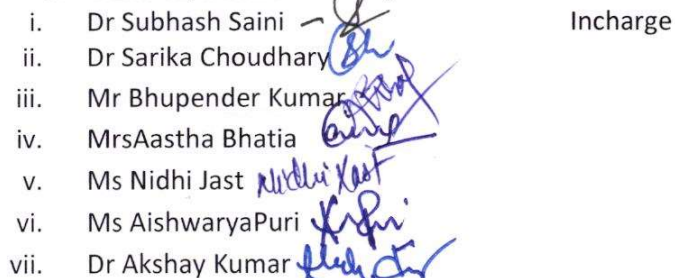 i. Dr Subhash Saini Incharge
ii. Dr Sarika Choudhary
iii. Mr Bhupender Kumar
iv. MrsAastha Bhatia
v. Ms Nidhi Jast Nidhi Jast
vi. Ms AishwaryaPuri
vii. Dr Akshay Kumar